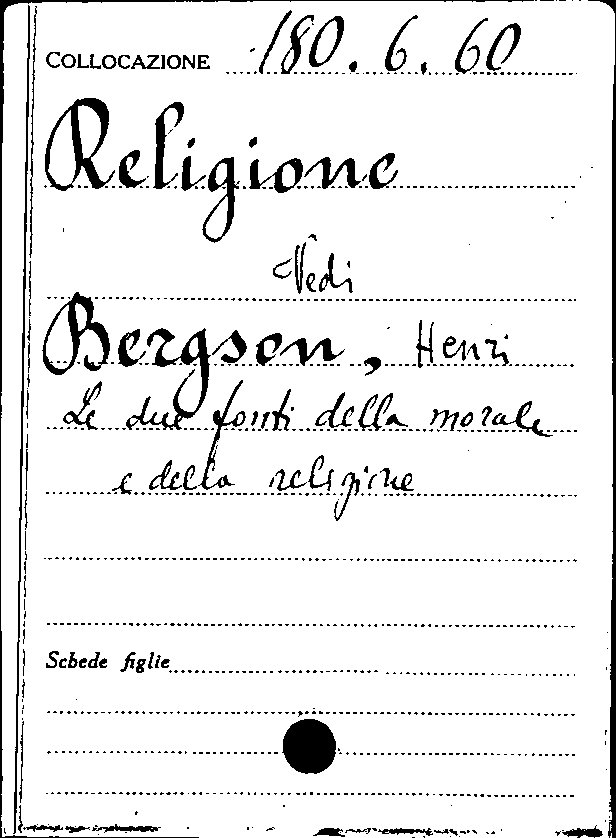 COLLOCAZIONE 180.6.60
Religione
Vedi
Bergson, Henri
Le due fonti della morale
e della religione
Schede figlie